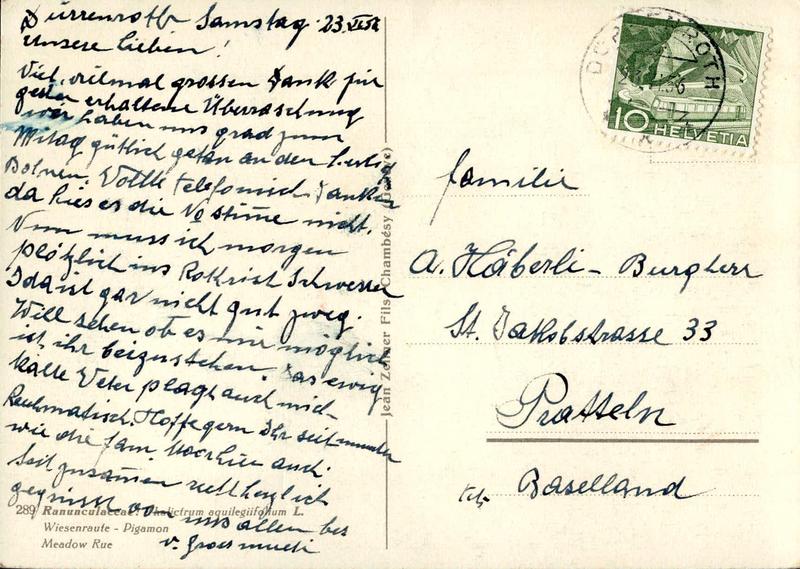 Dürrenroth Samstag 23.
Unsere Lieben!
Viel, vielmal grossen Dank für
gestern erhaltene Überraschung
wir haben uns grad zum
Mitag gütlich getan an den
Bohnen. Wollte telefonisch Danken
da hies es die No stime nicht.
Nun muss ich morgen
plötzlich ins Schwester
Ida ist gar nicht gut zweg.
Will sehen ob es mir möglich
ist, ihr beizustehen. Das ewig
kalte Weter plagt auch mich
Reuhmatisch. Hoffe gern Ihr seit munter
wie die fam. auch.
Seit zusamen recht herzlich
gegrüsst von uns allen bes
v. Grosmueti
289 Ranunculaceae: Thalictrum aquilegiifolium L.
Wiesenraute - Pigamon
Meadow Rue
Jean Zellmer Fils, Chambésy (Genève)
DÜRRENROTH
10 HELVETIA
Familie
A. Häberli - Burgherr
St. Jakobstrasse 33
Pratteln
Baselland